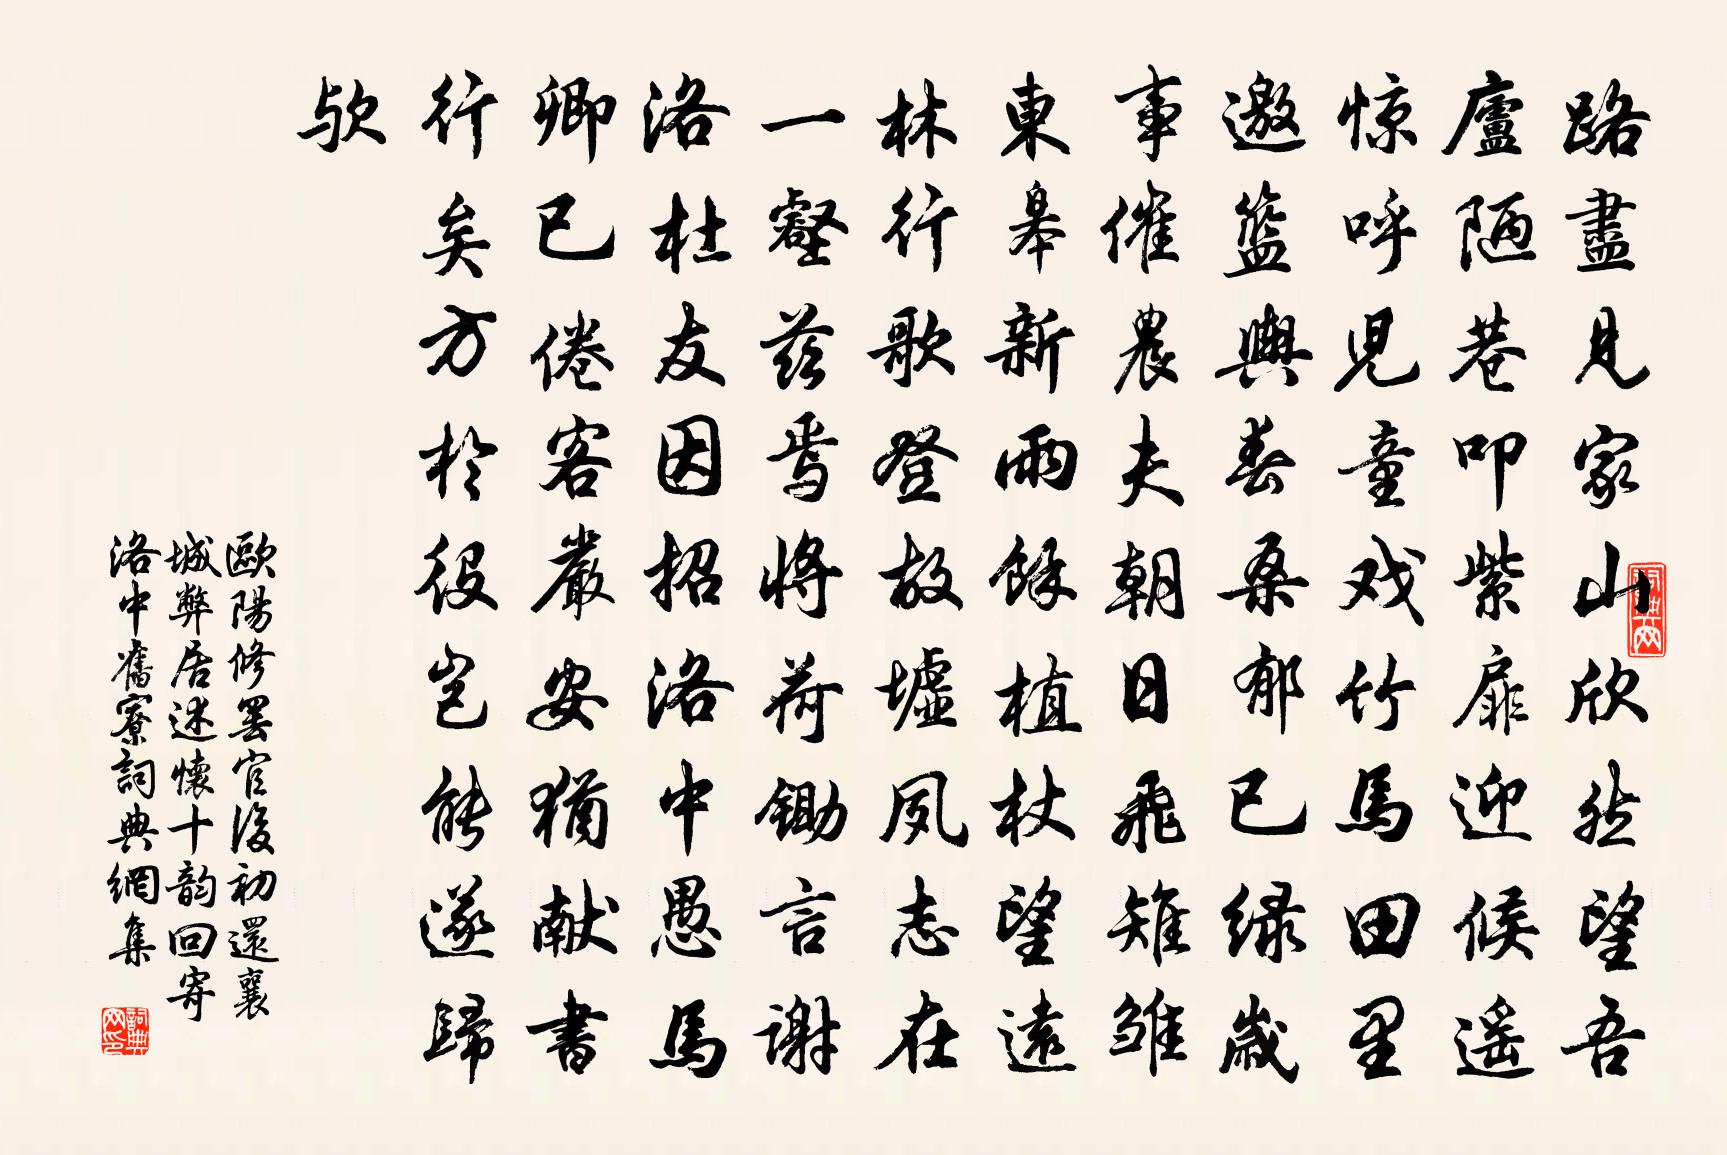 路盡見家山欣然望吾
廬陋巷叩紫扉迎候遥
惊呼児童戏竹馬田里
邀籃輿春桑郁已绿歲
事催農夫朝日飛雉雏
東皋新雨餘植杖望遠
林行歌登故墟夙志在
一壑兹焉将荷鋤言谢
洛社友因招洛中愚馬
卿已倦客嚴安猶献書
行矣方於役豈能遂歸
欤
歐陽修罢官後初還襄
城弊居述懷十韵回寄
洛中舊寮詞典網集
詞典网
詞典网印